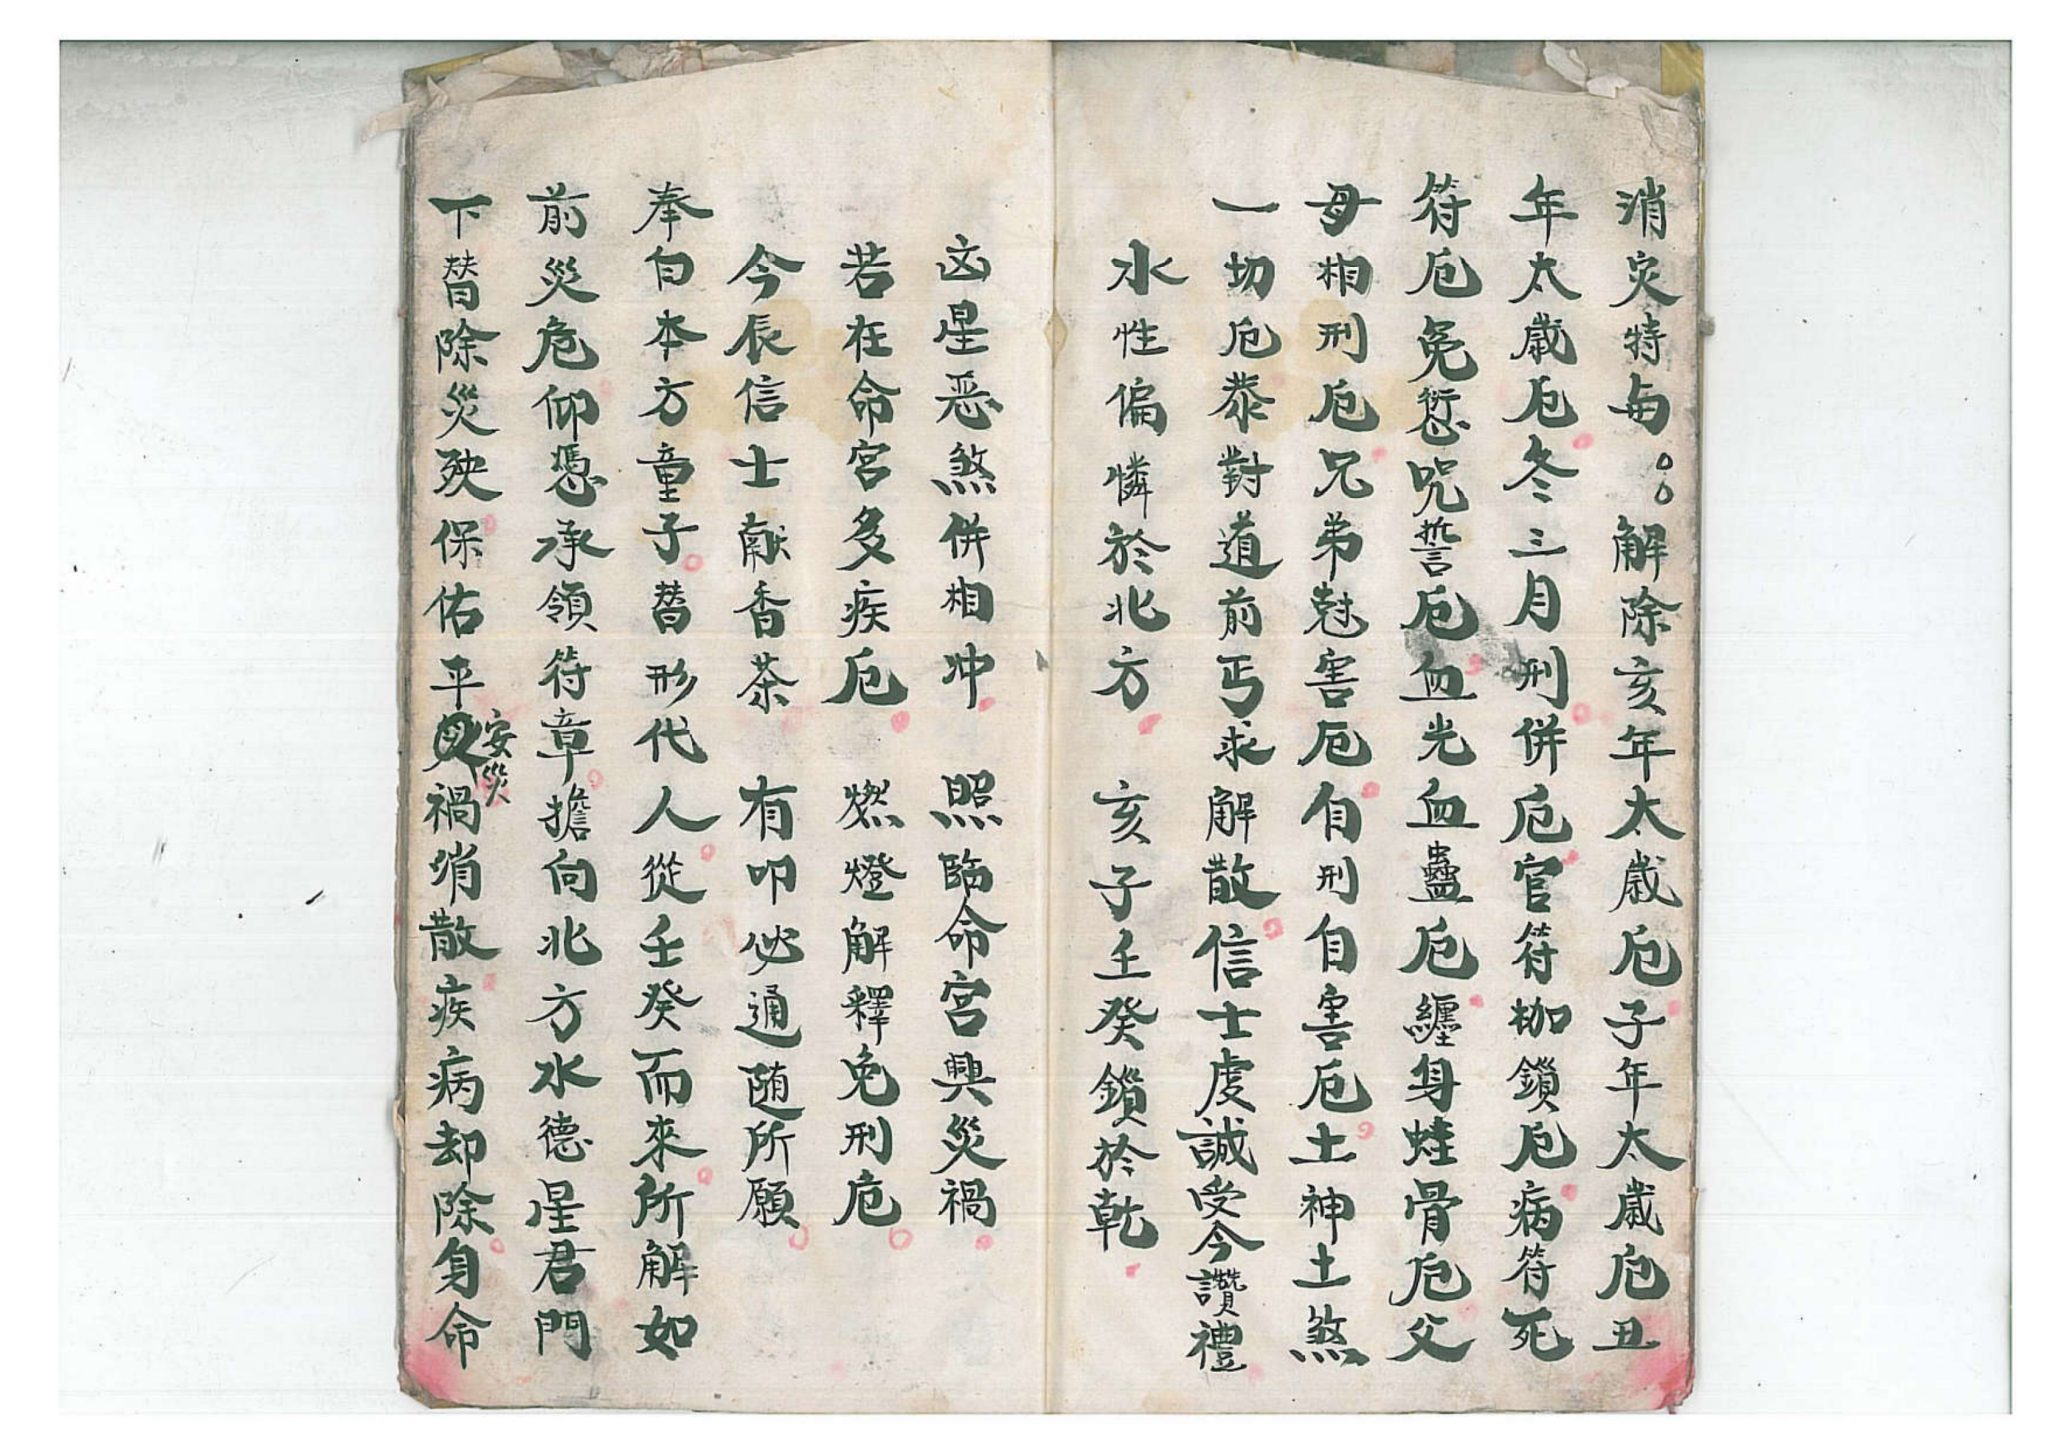 消灾特与。。解除亥年太歲厄子年太歲厄丑
年太歲厄冬三月刑併厄官符枷鎖厄病符死
符厄冤愆咒誓厄血光血蠱厄纏身蛙骨厄父
母相刑厄兄弟尅害厄自刑自害厄土神土煞
一切厄恭對道前丐求解散信士虔誠受今讚禮
水性偏憐於北方 亥子壬癸鎖於乾
凶星恶煞併相冲 照臨命宮興災禍
若在命宮多疾厄 燃燈解釋免刑厄
今辰信士献香茶 有叩必通随所願
奉白本方童子替形代人從壬癸而來所解如
前災危仰憑承領符章擔向北方水德星君門
下替除災殃保佑平安災禍消散疾病却除身命